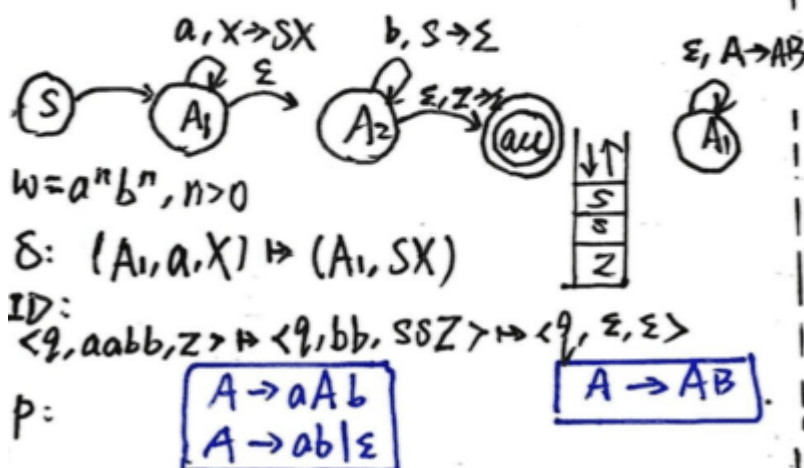 a, X→SX
b, S→Σ
ε, A→AB
ε
ε, Z→
S
A₁
A₂
acc
A₁
↓↑
S
S
Z
w=aⁿbⁿ, n>0
δ: (A₁, a, X) ↦ (A₁, SX)
ID:
<q, aabb, z> ↦ <q, bb, SSZ> ↦ <q, ε, ε>
P:
A → aAb
A → ab|ε
A → AB